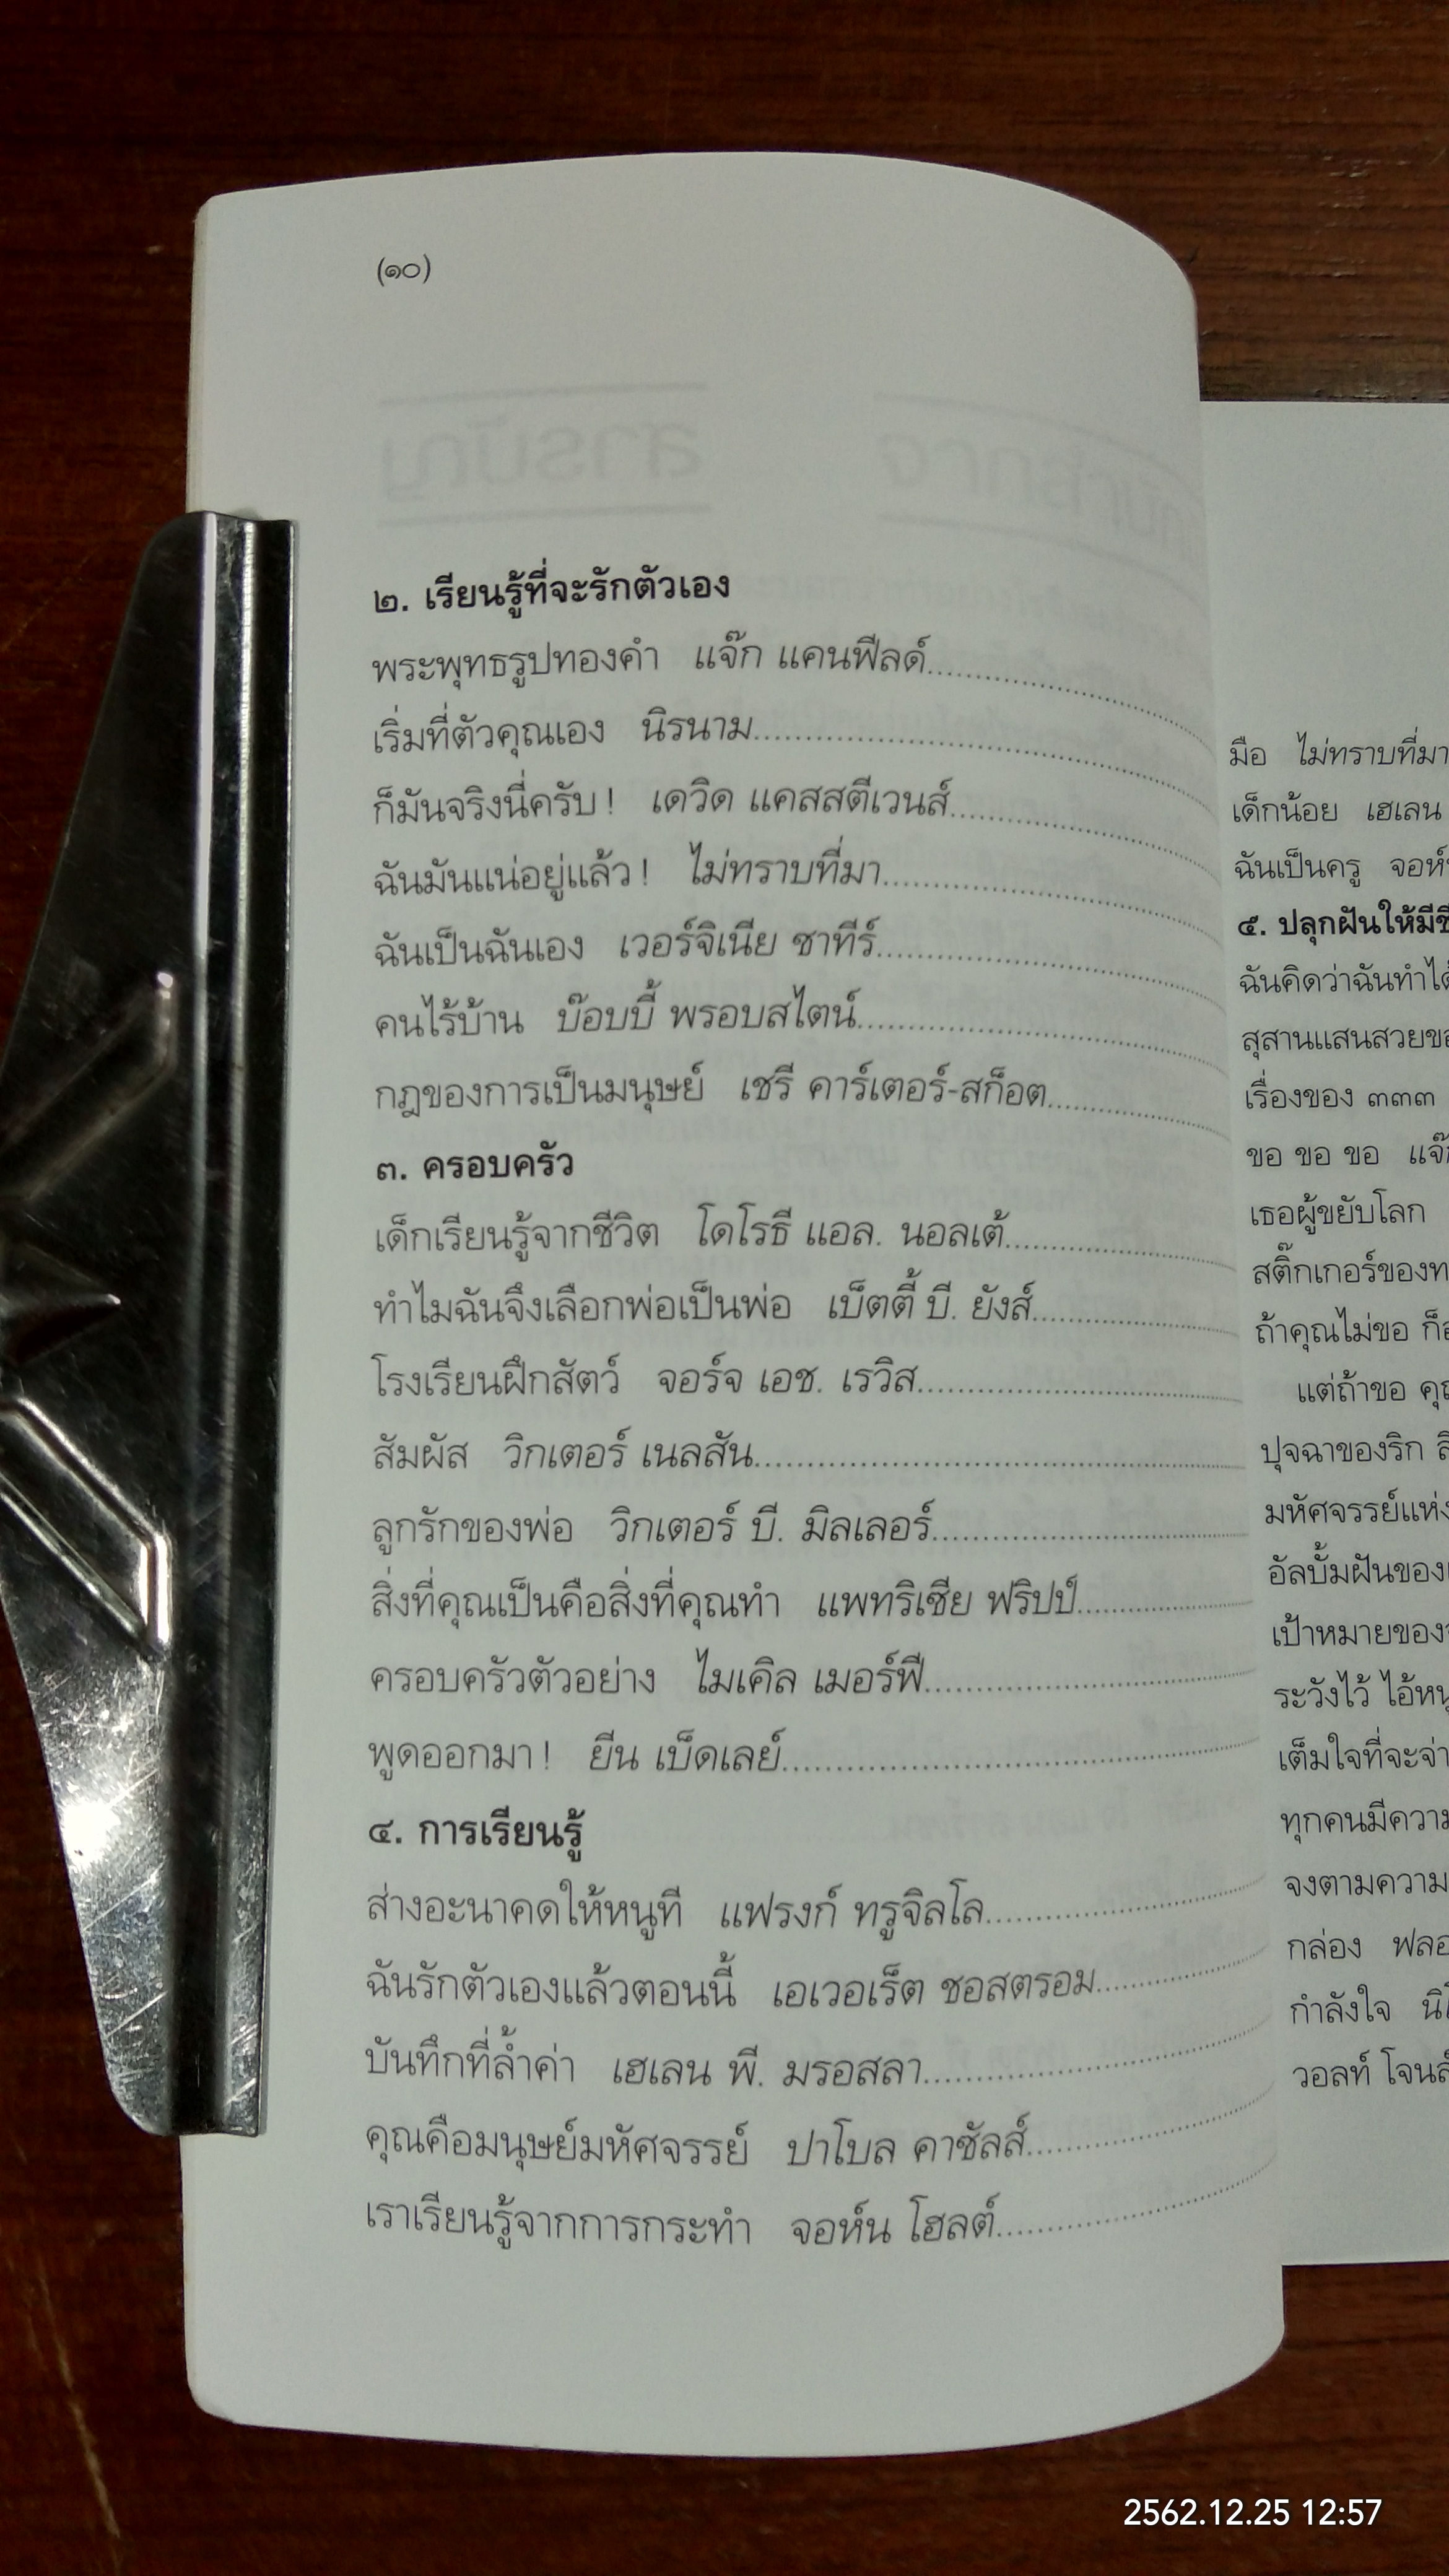 (๑๐)
๒. เรียนรู้ที่จะรักตัวเอง
พระพุทธรูปทองคำ แจ๊ก แคนฟีลด์
เริ่มที่ตัวคุณเอง นิรนาม
ก็มันจริงนี่ครับ ! เดวิด แคสสตีเวนส์
ฉันมันแน่อยู่แล้ว ! ไม่ทราบที่มา
ฉันเป็นฉันเอง เวอร์จิเนีย ซาทีร์
คนไร้บ้าน บ๊อบบี้ พรอบสไตน์
กฎของการเป็นมนุษย์ เชรี คาร์เตอร์-สก็อต
๓. ครอบครัว
เด็กเรียนรู้จากชีวิต โดโรธี แอล. นอลเต้
ทำไมฉันจึงเลือกพ่อเป็นพ่อ เบ็ตตี้ บี. ยังส์
โรงเรียนฝึกสัตว์ จอร์จ เอช. เรวิส
สัมผัส วิกเตอร์ เนลสัน
ลูกรักของพ่อ วิกเตอร์ บี. มิลเลอร์
สิ่งที่คุณเป็นคือสิ่งที่คุณทำ แพทริเซีย ฟริปป์
ครอบครัวตัวอย่าง ไมเคิล เมอร์ฟี
พูดออกมา ! ยีน เบ็ดเลย์
๔. การเรียนรู้
ส่างอะนาคดให้หนูที แฟรงก์ ทรูจิลโล
ฉันรักตัวเองแล้วตอนนี้ เอเวอเร็ต ชอสตรอม
บันทึกที่ล้ำค่า เฮเลน พี. มรอสลา
คุณคือมนุษย์มหัศจรรย์ ปาโบล คาซัลส์
เราเรียนรู้จากการกระทำ จอห์น โฮลต์
มือ ไม่ทราบที่มา
เด็กน้อย เฮเลน
ฉันเป็นครู
๕. ปลุกฝันให้มี
ฉันคิดว่าฉันทำได้
สุสานแสนสวย
เรื่องของ ๓๓๓
ขอ ขอ ขอ
เธอผู้ขยับโลก
สติ๊กเกอร์ของ
ถ้าคุณไม่ขอ
แต่ถ้าขอ
ปุจฉาของริก
มหัศจรรย์แห่ง
อัลบั้มฝันของ
เป้าหมายของ
ระวังไว้
เต็มใจที่จะ
ทุกคนมี
จงตามความ
กล่อง
กำลังใจ
วอลท์
2562.12.25 12:57